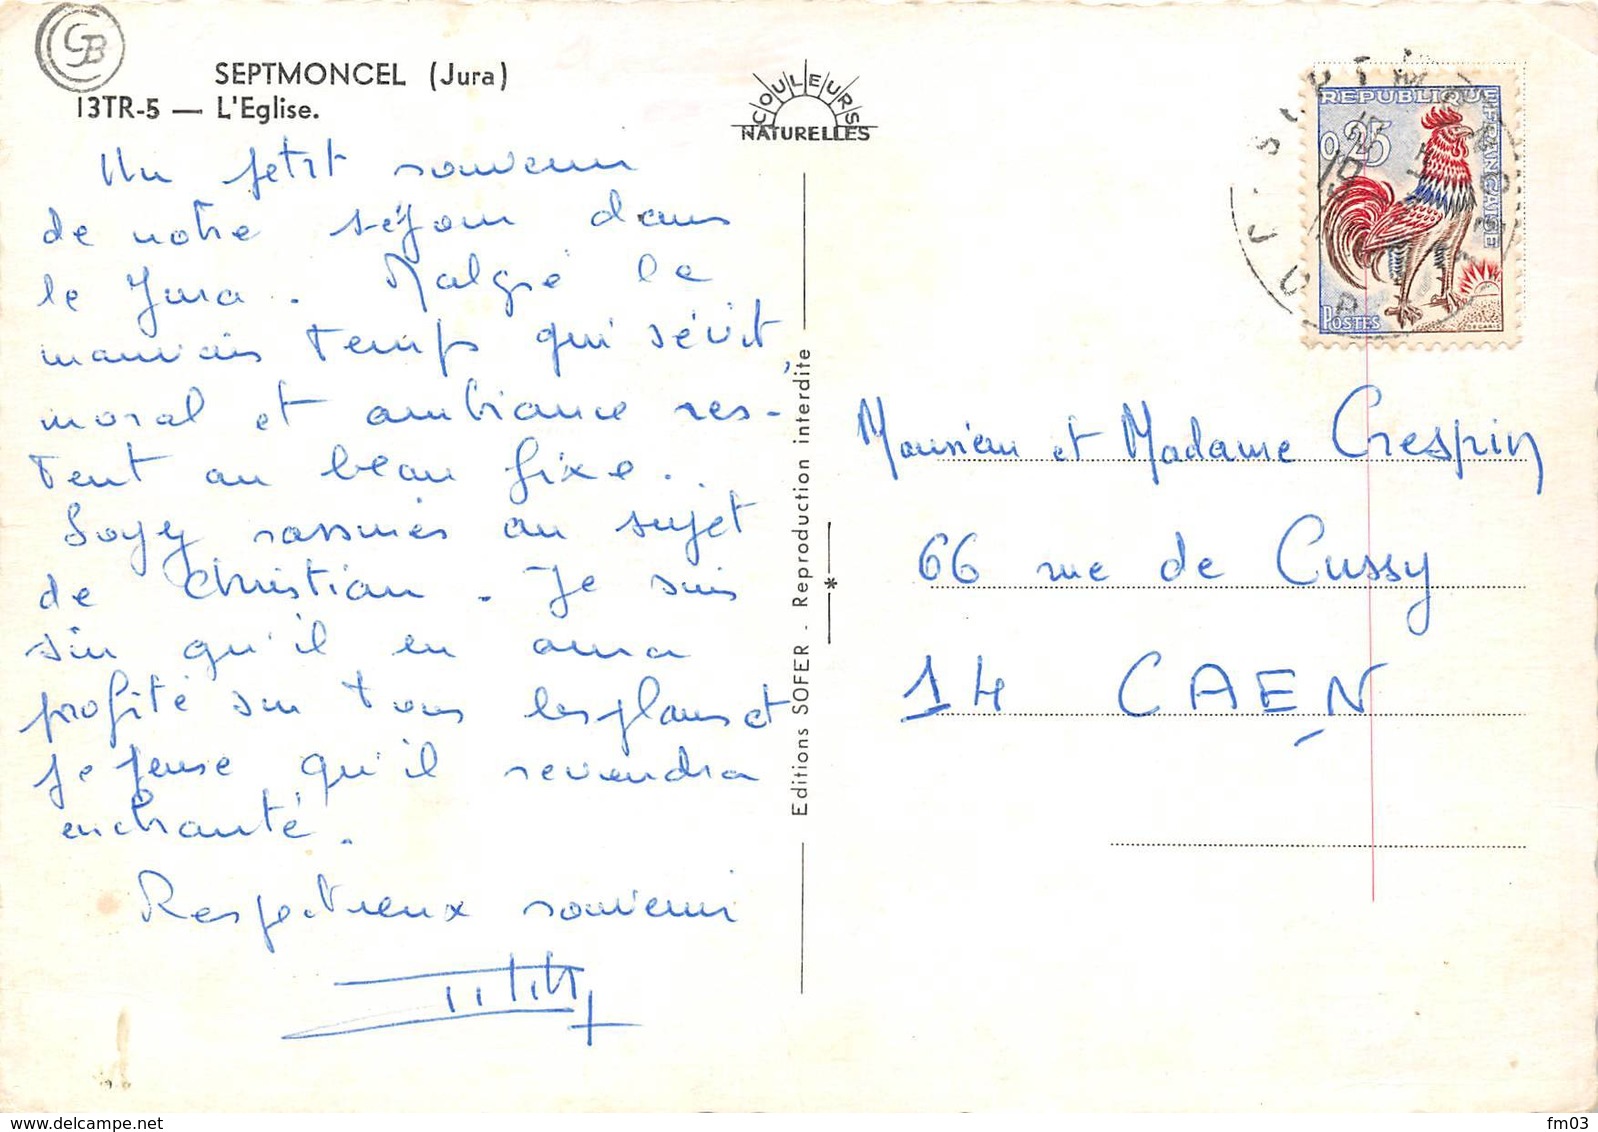 CB
SEPTMONCEL (Jura)
13TR-5 — L'Eglise.
COULEURS
NATURELLES
Un petit souvenir
de notre séjour dans
le Jura. Malgré le
mauvais temps qui sévit,
moral et ambiance res-
tent au beau fixe.
Soyez rassurés au sujet
de Christian. Je suis
sûr qu'il en aura
profité sur tous les plans et
je pense qu'il reviendra
enchanté.
Respectueux souvenir
Editions SOFER. Reproduction interdite
*
REPUBLIQUE FRANCAISE
0,25
POSTES
DECARIS
SEPTMONCEL
JURA
Monsieur et Madame Crespin
66 rue de Cussy
14 CAEN
fm03